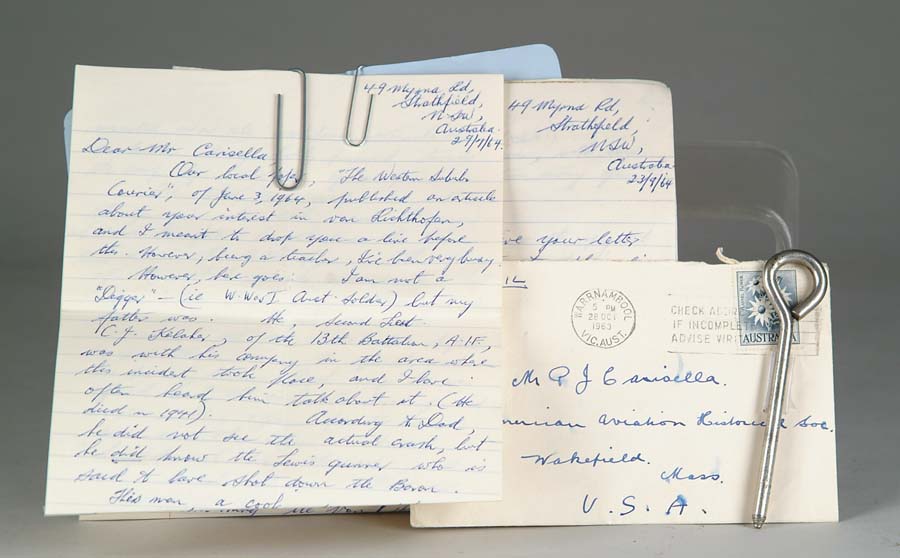 49 Myrna Rd,
Strathfield,
N.S.W,
Australia.
29/7/64.
Dear Mr Carisella,
Our local paper, "The Western Suburbs
Courier", of June 3, 1964, published an article
about your interest in von Richthofen,
and I meant to drop you a line before
this. However, being a teacher, I've been very busy
However, here goes: I am not a
"Digger" — (ie W. War I Aust. Soldier) but my
father was. He, Second Lieut.
C. J. Kelaher, of the 13th Battalion, A.I.F.,
was with his company in the area where
this incident took place, and I have
often heard him talk about it. (He
died in 1941).
According to Dad,
he did not see the actual crash, but
he did know the Lewis gunner who is
said to have shot down the Baron.
This man, a cook
49 Myrna Rd,
Strathfield,
N.S.W,
Australia
23/9/64
your letter
WARRNAMBOOL
5 PM
28 OCT
1963
VIC. AUST.
CHECK ADDRE
IF INCOMPLET
ADVISE WRIT
AUSTRALIA
Mr P J Carisella.
merican Aviation Historical Soc.
Wakefield.
Mass.
U. S. A.